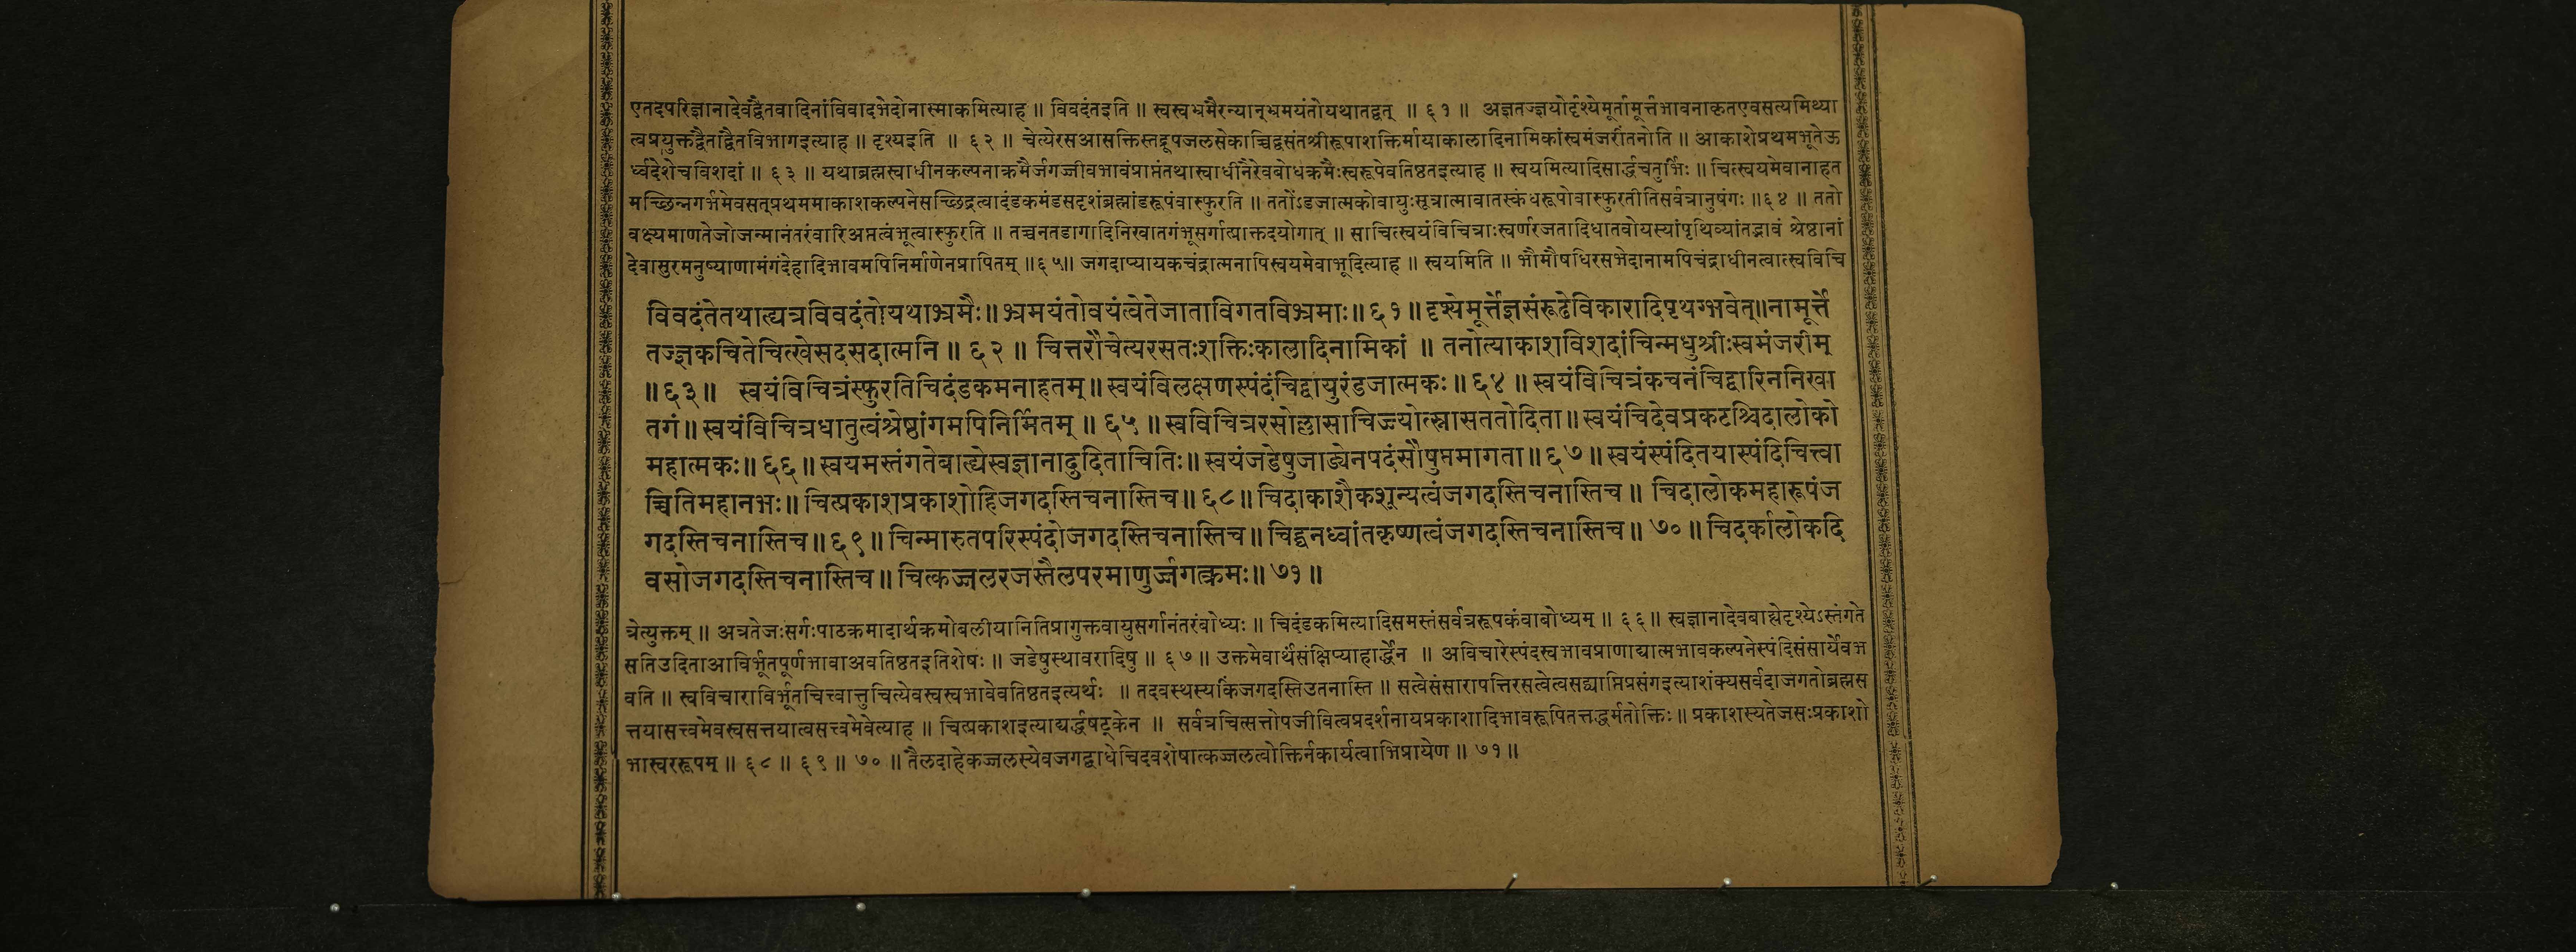 एतदपरिज्ञानादेवद्वैतवादिनांविवादभेदोनास्माकमित्याह ॥ विवदंतइति ॥ स्वस्वभ्रमैरन्यान्भ्रमयंतोयथातद्वत् ॥ ६१ ॥ अज्ञतज्ज्ञयोर्दृश्येमूर्तामूर्त्तभावनाकृतएवसत्यमिथ्या
त्वप्रयुक्तद्वैताद्वैतविभागइत्याह ॥ दृश्यइति ॥ ६२ ॥ चेत्येरसआसक्तिस्तद्रूपजलसेकाच्चिद्वसंतश्रीरूपाशक्तिर्मायाकालादिनामिकांस्वमंजरींतनोति ॥ आकाशेप्रथमभूतेऊ
र्ध्वदेशेचविशदां ॥ ६३ ॥ यथाब्रह्मस्वाधीनकल्पनाक्रमैर्जगज्जीवभावंप्राप्तंतथास्वाधीनैरेवबोधक्रमैःस्वरूपेवतिष्ठतइत्याह ॥ स्वयमित्यादिसार्द्धचतुर्भिः ॥ चित्स्वयमेवानाहत
मच्छिन्नगर्भमेवसत्प्रथममाकाशकल्पनेसच्छिद्रत्वादंडकमंडसदृशंब्रह्मांडरूपंवास्फुरति ॥ ततोंऽडजात्मकोवायुःसूत्रात्मावातस्कंधरूपोवास्फुरतीतिसर्वत्रानुषंगः ॥६४ ॥ ततो
वक्ष्यमाणतेजोजन्मानंतरंवारिअप्तत्वंभूत्वास्फुरति ॥ तच्चनतडागादिनिखातगंभूसर्गात्प्राक्तदयोगात् ॥ साचित्स्वयंविचित्राःस्वर्णरजतादिधातवोयस्यांपृथिव्यांतद्भावं श्रेष्ठानां
देवासुरमनुष्याणामंगंदेहादिभावमपिनिर्माणेनप्रापितम् ॥६५॥ जगदाप्यायकचंद्रात्मनापिस्वयमेवाभूदित्याह ॥ स्वयमिति ॥ भौमौषधिरसभेदानामपिचंद्राधीनत्वात्स्वविचि
विवदंतेतथाह्यत्रविवदंतोयथाभ्रमैः॥ भ्रमयंतोवयंत्वेतेजाताविगतविभ्रमाः॥ ६१ ॥ दृश्येमूर्त्तेज्ञसंरूढेविकारादिपृथग्भवेत्॥नामूर्त्ते
तज्ज्ञकचितेचित्खेसदसदात्मनि ॥ ६२ ॥ चित्तरौचेत्यरसतःशक्तिःकालादिनामिकां ॥ तनोत्याकाशविशदांचिन्मधुश्रीःस्वमंजरीम्
॥ ६३ ॥ स्वयंविचित्रंस्फुरतिचिदंडकमनाहतम् ॥ स्वयंविलक्षणस्पंदंचिद्वायुरंडजात्मकः ॥ ६४ ॥ स्वयंविचित्रंकचनंचिद्वारिननिखा
तगं॥ स्वयंविचित्रधातुत्वंश्रेष्ठांगमपिनिर्मितम् ॥ ६५ ॥ स्वविचित्ररसोल्लासाचिज्ज्योत्स्नासततोदिता॥ स्वयंचिदेवप्रकटश्चिदालोको
महात्मकः॥ ६६ ॥ स्वयमस्तंगतेबाह्येस्वज्ञानादुदिताचितिः॥ स्वयंजडेषुजाड्येनपदंसौषुप्तमागता ॥ ६७ ॥ स्वयंस्पंदितयास्पंदिचित्त्वा
च्चितिमहानभः॥ चित्प्रकाशप्रकाशोहिजगदस्तिचनास्तिच॥ ६८ ॥ चिदाकाशैकशून्यत्वंजगदस्तिचनास्तिच ॥ चिदालोकमहारूपंज
गदस्तिचनास्तिच॥ ६९ ॥ चिन्मारुतपरिस्पंदोजगदस्तिचनास्तिच॥ चिद्घनध्वांतकृष्णत्वंजगदस्तिचनास्तिच॥ ७० ॥ चिदर्कालोकदि
वसोजगदस्तिचनास्तिच॥ चित्कज्जलरजस्तैलपरमाणुर्ज्जगत्क्रमः॥ ७१ ॥
त्रेत्युक्तम् ॥ अत्रतेजःसर्गःपाठक्रमादार्थक्रमोबलीयानितिप्रागुक्तवायुसर्गानंतरंबोध्यः ॥ चिदंडकमित्यादिसमस्तंसर्वत्ररूपकंवाबोध्यम् ॥ ६६ ॥ स्वज्ञानादेवबाह्येदृश्येऽस्तंगते
सतिउदिताआविर्भूतपूर्णभावाअवतिष्ठतइतिशेषः ॥ जडेषुस्थावरादिषु ॥ ६७ ॥ उक्तमेवार्थंसंक्षिप्याहार्द्धेन ॥ अविचारेस्पंदस्वभावप्राणाद्यात्मभावकल्पनेस्पंदिसंसार्येवभ
वति ॥ स्वविचाराविर्भूतचित्त्वात्तुचित्येवस्वस्वभावेवतिष्ठतइत्यर्थः ॥ तदवस्थस्यकिंजगदस्तिउतनास्ति ॥ सत्वेसंसारापत्तिरसत्वेत्वसद्व्याप्तिप्रसंगइत्याशंक्यसर्वदाजगतोब्रह्मस
त्तयासत्त्वमेवस्वसत्तयात्वसत्त्वमेवेत्याह ॥ चित्प्रकाशइत्याद्यर्द्धषट्केन ॥ सर्वत्रचित्सत्तोपजीवित्वप्रदर्शनायप्रकाशादिभावरूपितत्तद्धर्मतोक्तिः॥ प्रकाशस्यतेजसःप्रकाशो
भास्वररूपम् ॥ ६८ ॥ ६९ ॥ ७० ॥ तैलदाहेकज्जलस्येवजगद्बाधेचिदवशेषात्कज्जलत्वोक्तिर्नकार्यत्वाभिप्रायेण ॥ ७१ ॥